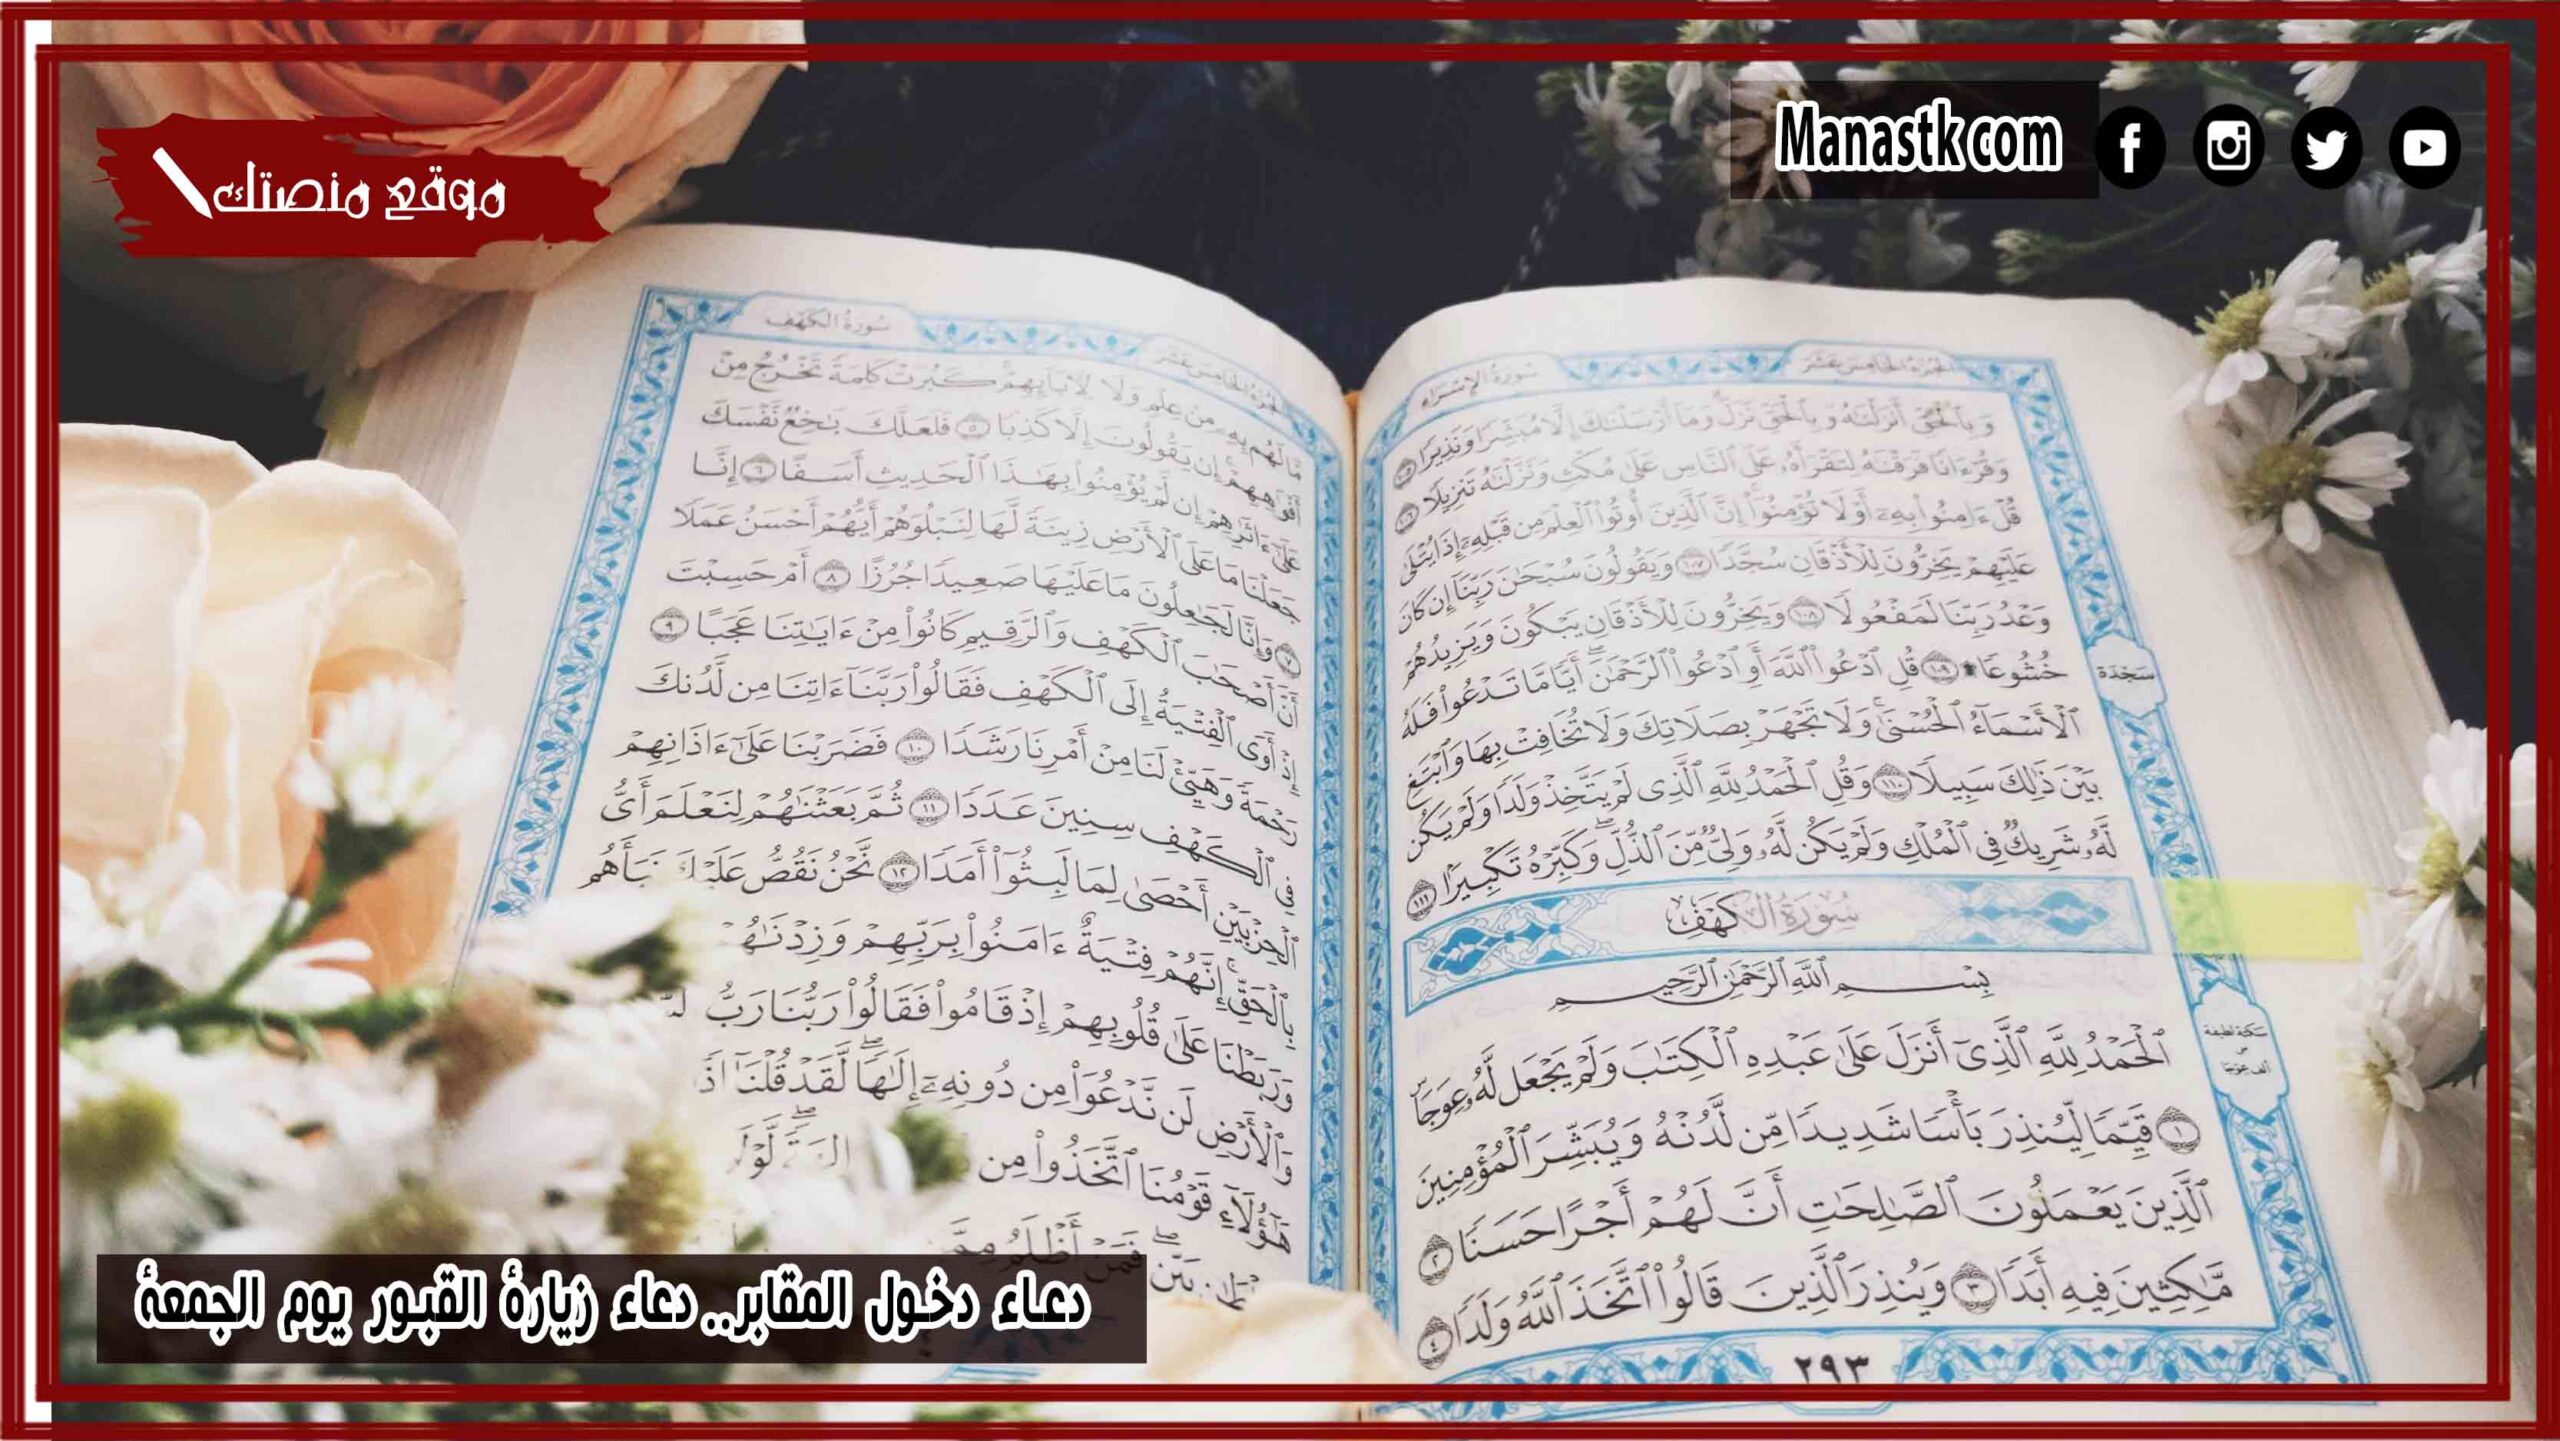 Manastk com
موقع منصتك
سورة الإسراء
الجزء الخامس عشر
وَبِٱلْحَقِّ أَنزَلْنَٰهُ وَبِٱلْحَقِّ نَزَلَ وَمَآ أَرْسَلْنَٰكَ إِلَّا مُبَشِّرًا وَنَذِيرًا ١٠٥
وَقُرْءَانًا فَرَقْنَٰهُ لِتَقْرَأَهُۥ عَلَى ٱلنَّاسِ عَلَىٰ مُكْثٍ وَنَزَّلْنَٰهُ تَنزِيلًا ١٠٦
قُلْ ءَامِنُوا۟ بِهِۦٓ أَوْ لَا تُؤْمِنُوٓا۟ إِنَّ ٱلَّذِينَ أُوتُوا۟ ٱلْعِلْمَ مِن قَبْلِهِۦٓ إِذَا يُتْلَىٰ
عَلَيْهِمْ يَخِرُّونَ لِلْأَذْقَانِ سُجَّدًا ١٠٧ وَيَقُولُونَ سُبْحَٰنَ رَبِّنَآ إِن كَانَ
وَعْدُ رَبِّنَا لَمَفْعُولًا ١٠٨ وَيَخِرُّونَ لِلْأَذْقَانِ يَبْكُونَ وَيَزِيدُهُمْ
خُشُوعًا ۩ ١٠٩ قُلِ ٱدْعُوا۟ ٱللَّهَ أَوِ ٱدْعُوا۟ ٱلرَّحْمَٰنَ ۖ أَيًّا مَّا تَدْعُوا۟ فَلَهُ
ٱلْأَسْمَآءُ ٱلْحُسْنَىٰ ۚ وَلَا تَجْهَرْ بِصَلَاتِكَ وَلَا تُخَافِتْ بِهَا وَٱبْتَغِ
بَيْنَ ذَٰلِكَ سَبِيلًا ١١٠ وَقُلِ ٱلْحَمْدُ لِلَّهِ ٱلَّذِى لَمْ يَتَّخِذْ وَلَدًا وَلَمْ يَكُن
لَّهُۥ شَرِيكٌ فِى ٱلْمُلْكِ وَلَمْ يَكُن لَّهُۥ وَلِىٌّ مِّنَ ٱلذُّلِّ ۖ وَكَبِّرْهُ تَكْبِيرًا ١١١
سَجْدَة
سورة الكهف
بِسْمِ ٱللَّهِ ٱلرَّحْمَٰنِ ٱلرَّحِيمِ
ٱلْحَمْدُ لِلَّهِ ٱلَّذِىٓ أَنزَلَ عَلَىٰ عَبْدِهِ ٱلْكِتَٰبَ وَلَمْ يَجْعَل لَّهُۥ عِوَجَاۜ
١ قَيِّمًا لِّيُنذِرَ بَأْسًا شَدِيدًا مِّن لَّدُنْهُ وَيُبَشِّرَ ٱلْمُؤْمِنِينَ
ٱلَّذِينَ يَعْمَلُونَ ٱلصَّٰلِحَٰتِ أَنَّ لَهُمْ أَجْرًا حَسَنًا ٢
مَّٰكِثِينَ فِيهِ أَبَدًا ٣ وَيُنذِرَ ٱلَّذِينَ قَالُوا۟ ٱتَّخَذَ ٱللَّهُ وَلَدًا ٤
سكتة لطيفة
ألف عوجا
٢٩٣
الجزء الخامس عشر
سورة الكهف
مَّا لَهُم بِهِۦ مِنْ عِلْمٍ وَلَا لِءَابَآئِهِمْ ۚ كَبُرَتْ كَلِمَةً تَخْرُجُ مِنْ
أَفْوَٰهِهِمْ ۚ إِن يَقُولُونَ إِلَّا كَذِبًا ٥ فَلَعَلَّكَ بَٰخِعٌ نَّفْسَكَ
عَلَىٰٓ ءَاثَٰرِهِمْ إِن لَّمْ يُؤْمِنُوا۟ بِهَٰذَا ٱلْحَدِيثِ أَسَفًا ٦ إِنَّا
جَعَلْنَا مَا عَلَى ٱلْأَرْضِ زِينَةً لَّهَا لِنَبْلُوَهُمْ أَيُّهُمْ أَحْسَنُ عَمَلًا
٧ وَإِنَّا لَجَٰعِلُونَ مَا عَلَيْهَا صَعِيدًا جُرُزًا ٨ أَمْ حَسِبْتَ
أَنَّ أَصْحَٰبَ ٱلْكَهْفِ وَٱلرَّقِيمِ كَانُوا۟ مِنْ ءَايَٰتِنَا عَجَبًا ٩
إِذْ أَوَى ٱلْفِتْيَةُ إِلَى ٱلْكَهْفِ فَقَالُوا۟ رَبَّنَآ ءَاتِنَا مِن لَّدُنكَ
رَحْمَةً وَهَيِّئْ لَنَا مِنْ أَمْرِنَا رَشَدًا ١٠ فَضَرَبْنَا عَلَىٰٓ ءَاذَانِهِمْ
فِى ٱلْكَهْفِ سِنِينَ عَدَدًا ١١ ثُمَّ بَعَثْنَٰهُمْ لِنَعْلَمَ أَىُّ
ٱلْحِزْبَيْنِ أَحْصَىٰ لِمَا لَبِثُوٓا۟ أَمَدًا ١٢ نَّحْنُ نَقُصُّ عَلَيْكَ نَبَأَهُم
بِٱلْحَقِّ ۚ إِنَّهُمْ فِتْيَةٌ ءَامَنُوا۟ بِرَبِّهِمْ وَزِدْنَٰهُمْ
وَرَبَطْنَا عَلَىٰ قُلُوبِهِمْ إِذْ قَامُوا۟ فَقَالُوا۟ رَبُّنَا رَبُّ
وَٱلْأَرْضِ لَن نَّدْعُوَا۟ مِن دُونِهِۦٓ إِلَٰهًا ۖ لَّقَدْ قُلْنَآ
هَٰٓؤُلَآءِ قَوْمُنَا ٱتَّخَذُوا۟ مِن
بَيِّنٍ ۖ فَمَنْ أَظْلَمُ مِمَّنِ
دعاء دخول المقابر.. دعاء زيارة القبور يوم الجمعة